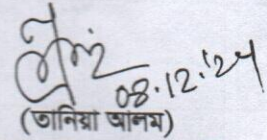 08.12.'24
(তানিয়া আলম)